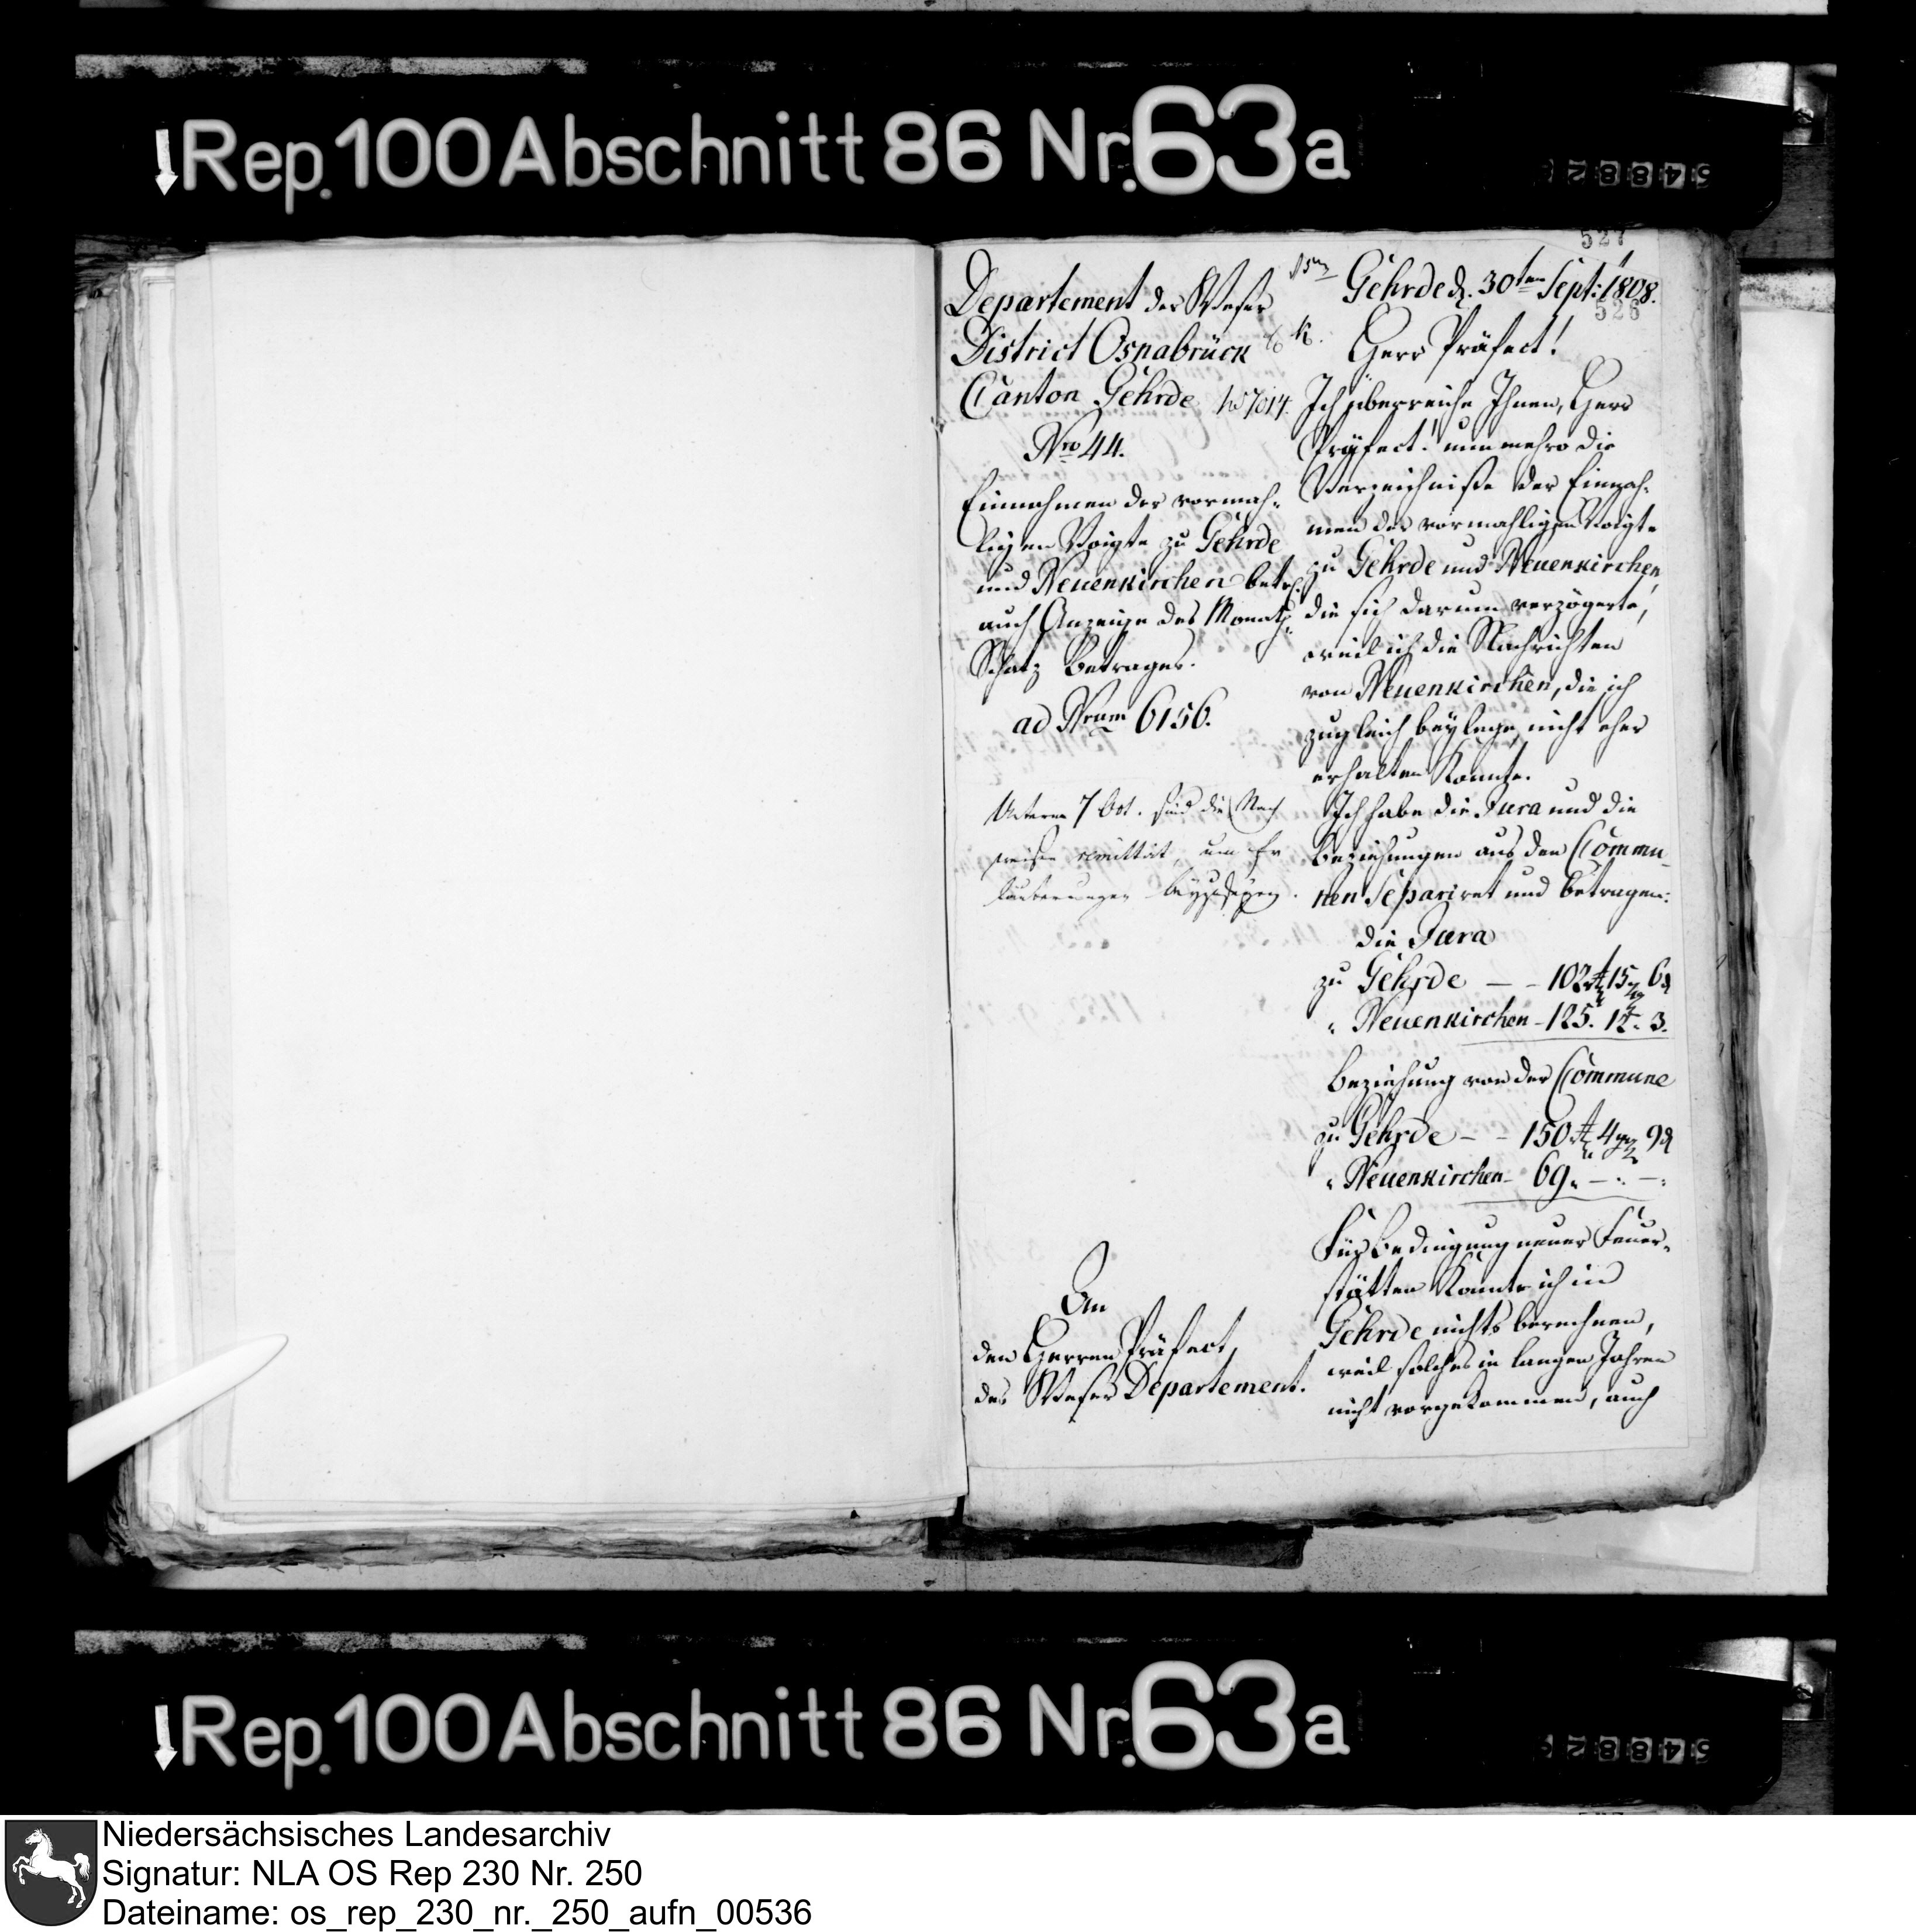 Rep. 100 Abschnitt 86 Nr. 63a
54882
527
526
Departement der Weser
District Osnabrück
Canton Gehrde
No 7014.
Nro 44.
Einnahmen der vormah-
ligen Voigte zu Gehrde
und Neuenkirchen betr.
auch Anzeige des Monath-
Schatz Betrages.
ad Nrum 6156.
Unterm 7 Oct. sind die Nach
weisen remittirt, um Er
läuterungen beyzufügen.
An
den Herren Präfect
des Weser Departement.
Gehrde d. 30ten Sept: 1808.
Herr Präfect!
Ich überreiche Ihnen, Herr
Präfect! nunmehro die
Verzeichniße der Einnah-
men der vormahligen Voigte
zu Gehrde und Neuenkirchen,
die sich darum verzögerte,
weil ich die Nachrichten
von Neuenkirchen, die ich
zugleich beylege, nicht eher
erhalten konnte.
Ich habe die Jura und die
Beziehungen aus den Commu-
nen separiret und betragen:
die Jura
zu Gehrde — - 102 15 6
" Neuenkirchen - 125. 12. 3.
Beziehung von der Commune
zu Gehrde - - 150 4 9
" Neuenkirchen - 69. —. —.
Für Bedingung neuer Feuer-
stätten konnte ich in
Gehrde nichts berechnen,
weil solches in langen Jahren
nicht vorgekommen, auch
Rep. 100 Abschnitt 86 Nr. 63a
54882
Niedersächsisches Landesarchiv
Signatur: NLA OS Rep 230 Nr. 250
Dateiname: os_rep_230_nr._250_aufn_00536